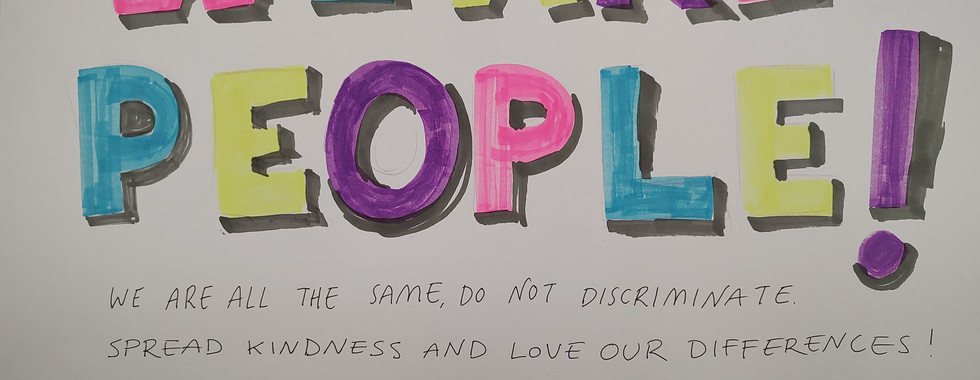 PEOPLE!
WE ARE ALL THE SAME, DO NOT DISCRIMINATE.
SPREAD KINDNESS AND LOVE OUR DIFFERENCES!